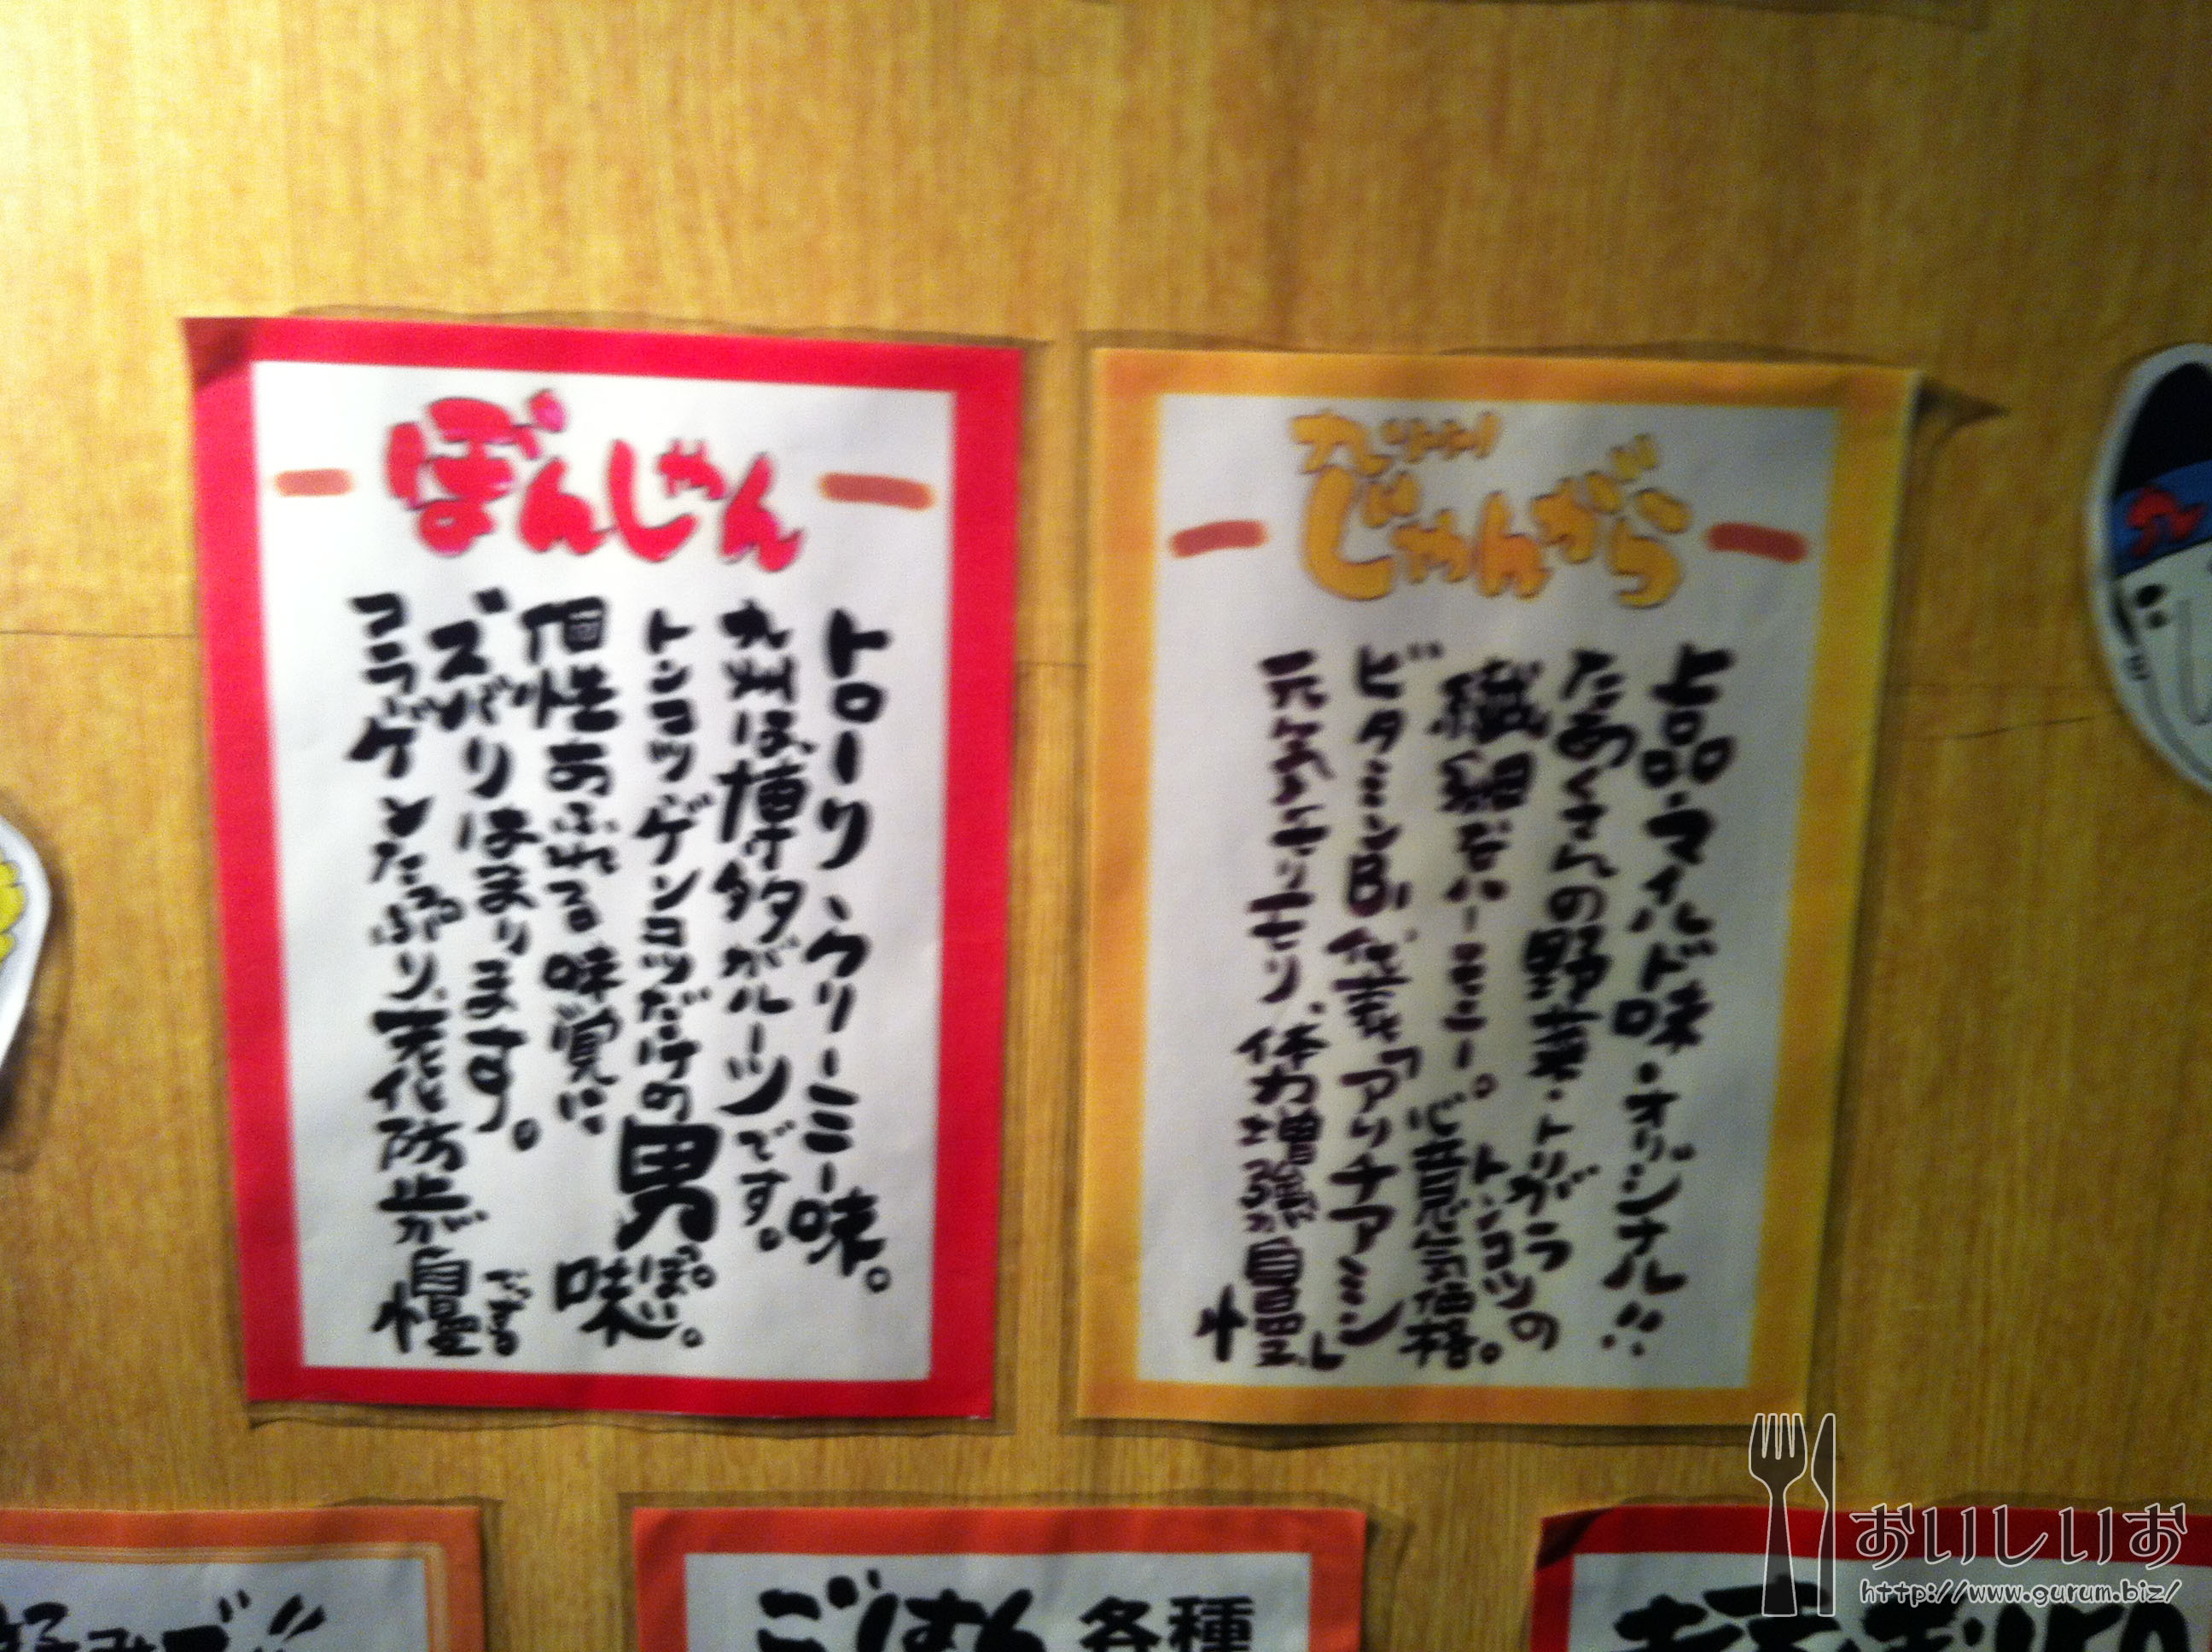 ぼんしゃん
トローリ、クリーミー味。
九州は、博多がルーツです。
トンコツゲンコツだけの男っぽい味。
個性あふれる味覚に
ズバリはまります。
コラーゲンたっぷり、老化防止が自慢
です
九州
じゃんがら
上品・マイルド味・オリジナル!!
たあくさんの野菜・トリガラ
トンコツの
繊細なハーモニー。心意気価格。
ビタミンB1代表「アリチアミン」
元気モリモリ、体力増強が自慢
ごはん各種
おいしいお
http://www.gurum.biz/